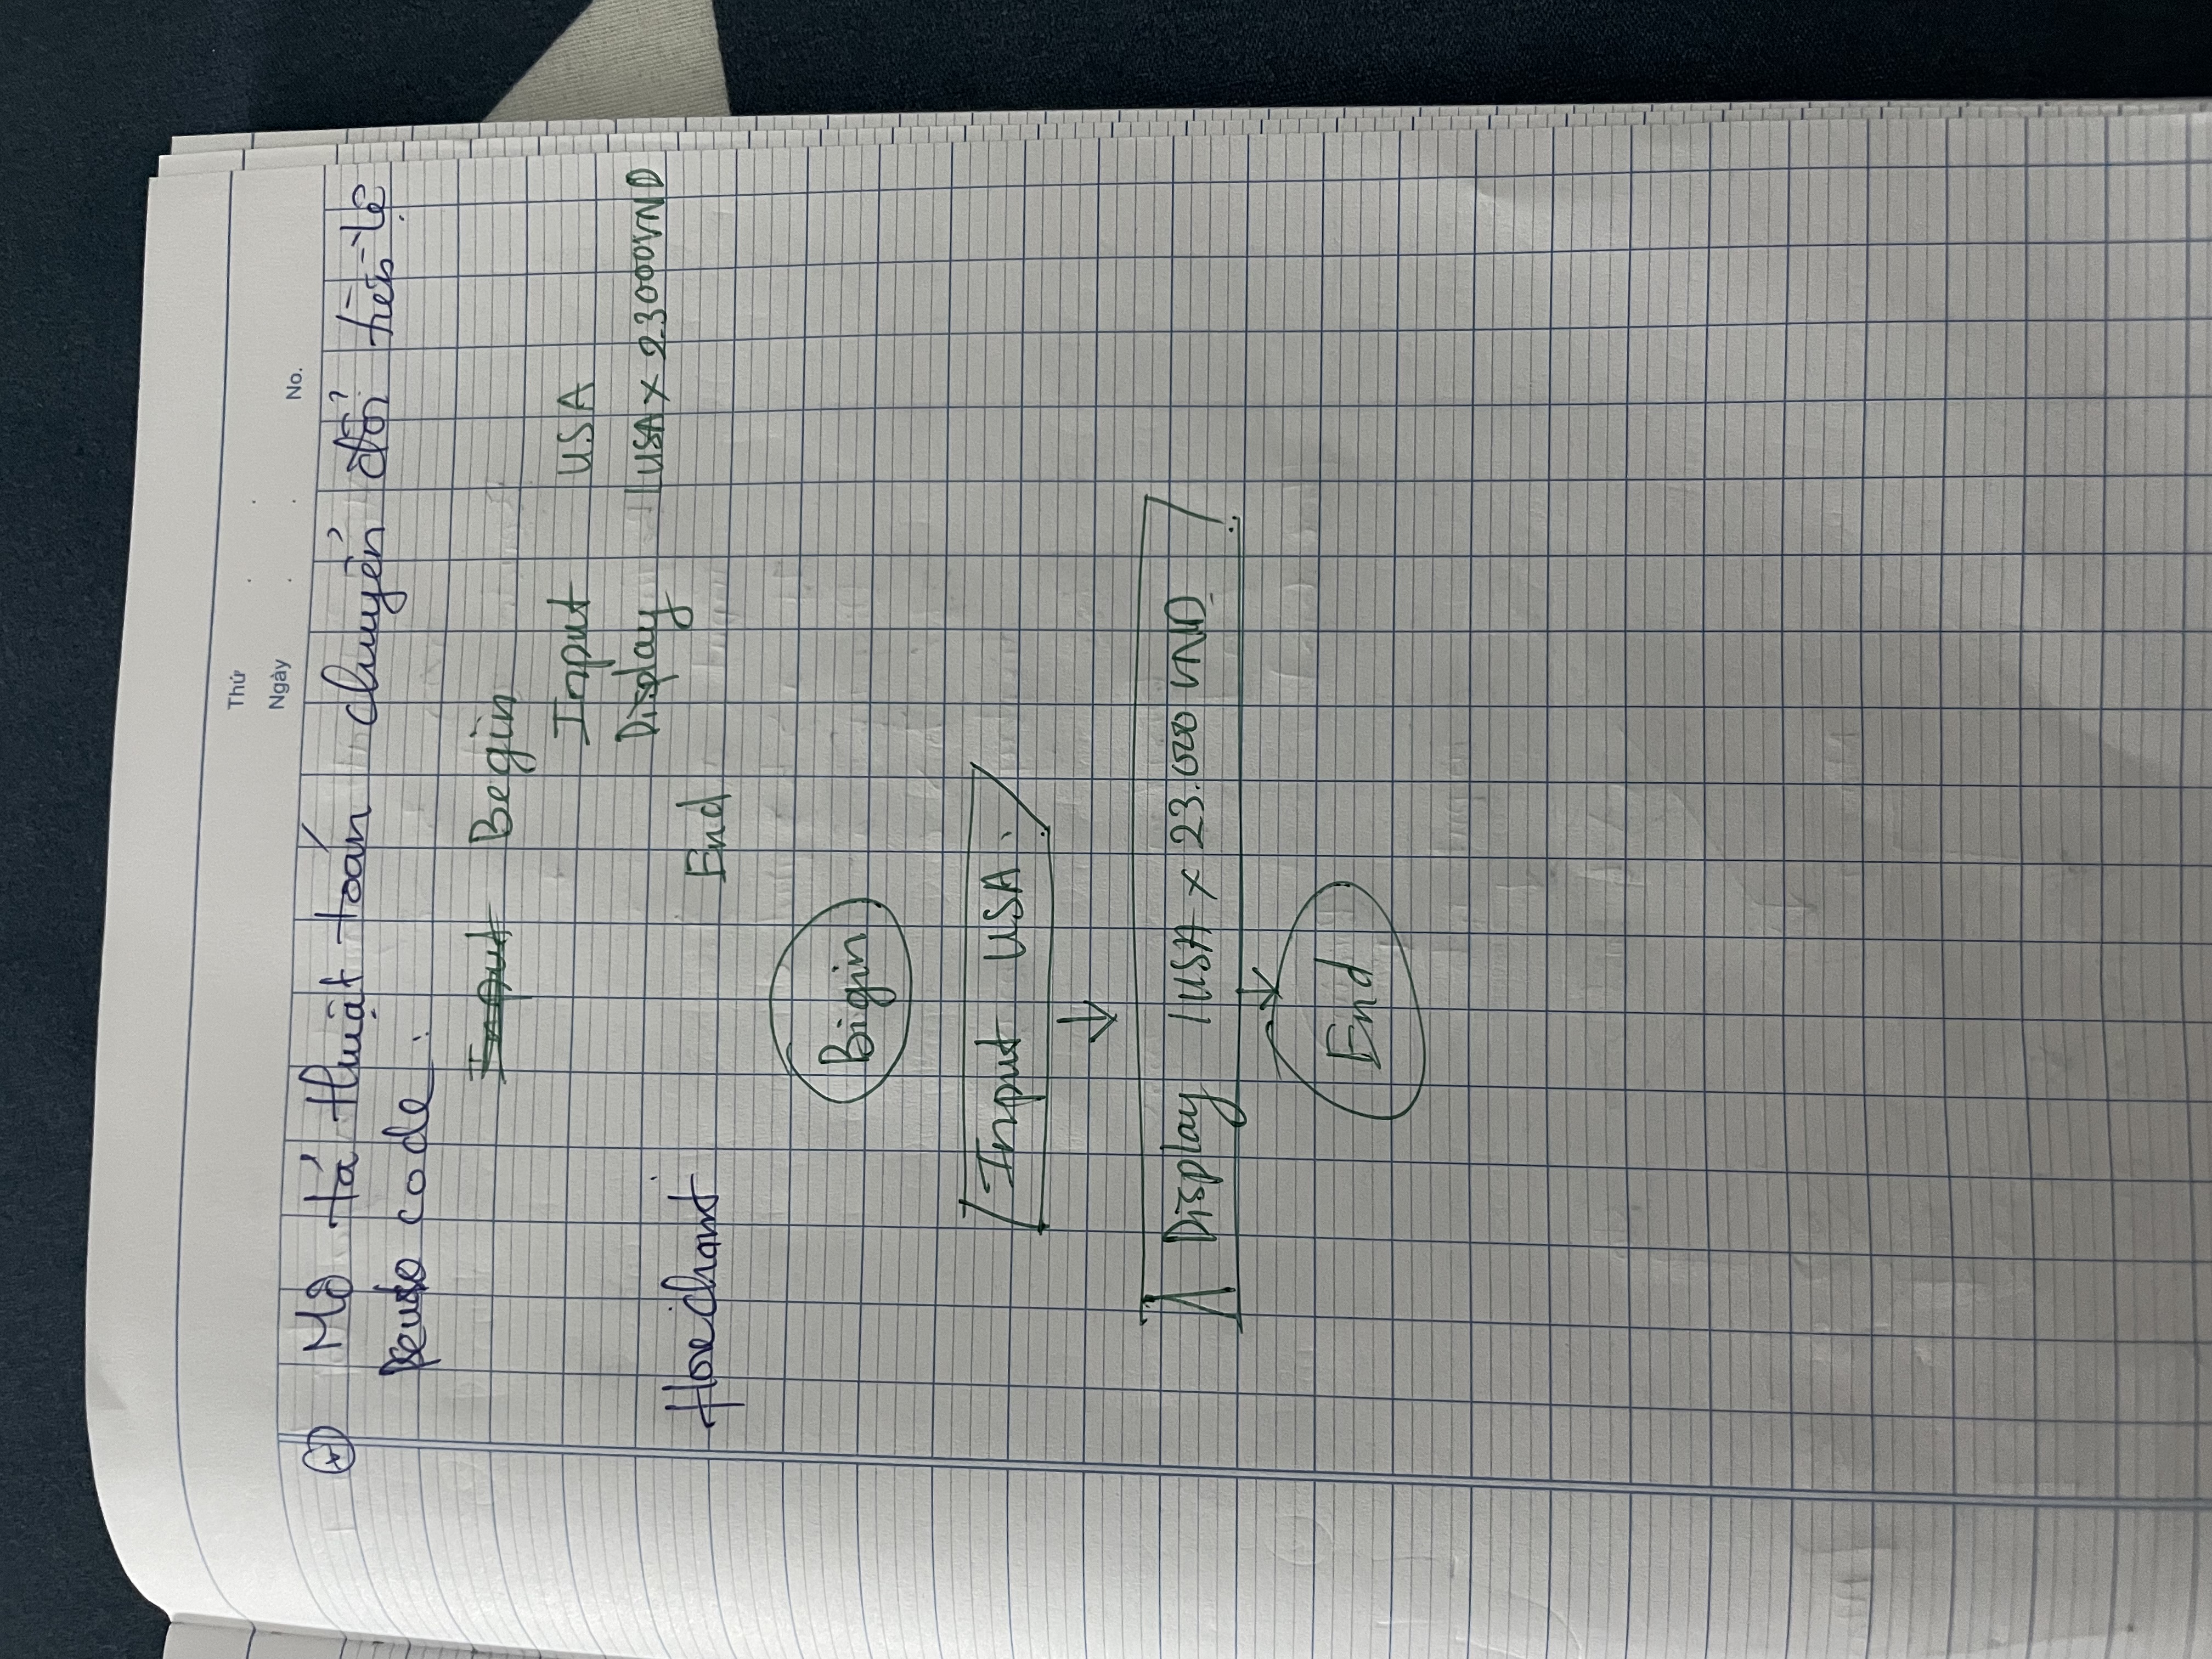 Thứ
Ngày
No.
Mô tả thuật toán chuyển đổi tiền tệ
Pseudo code :
Input Begin
Input USA
Display 1 USA x 23000 VND
End
Bigin
Input USA
Display 1 USA x 23.000 VND
End